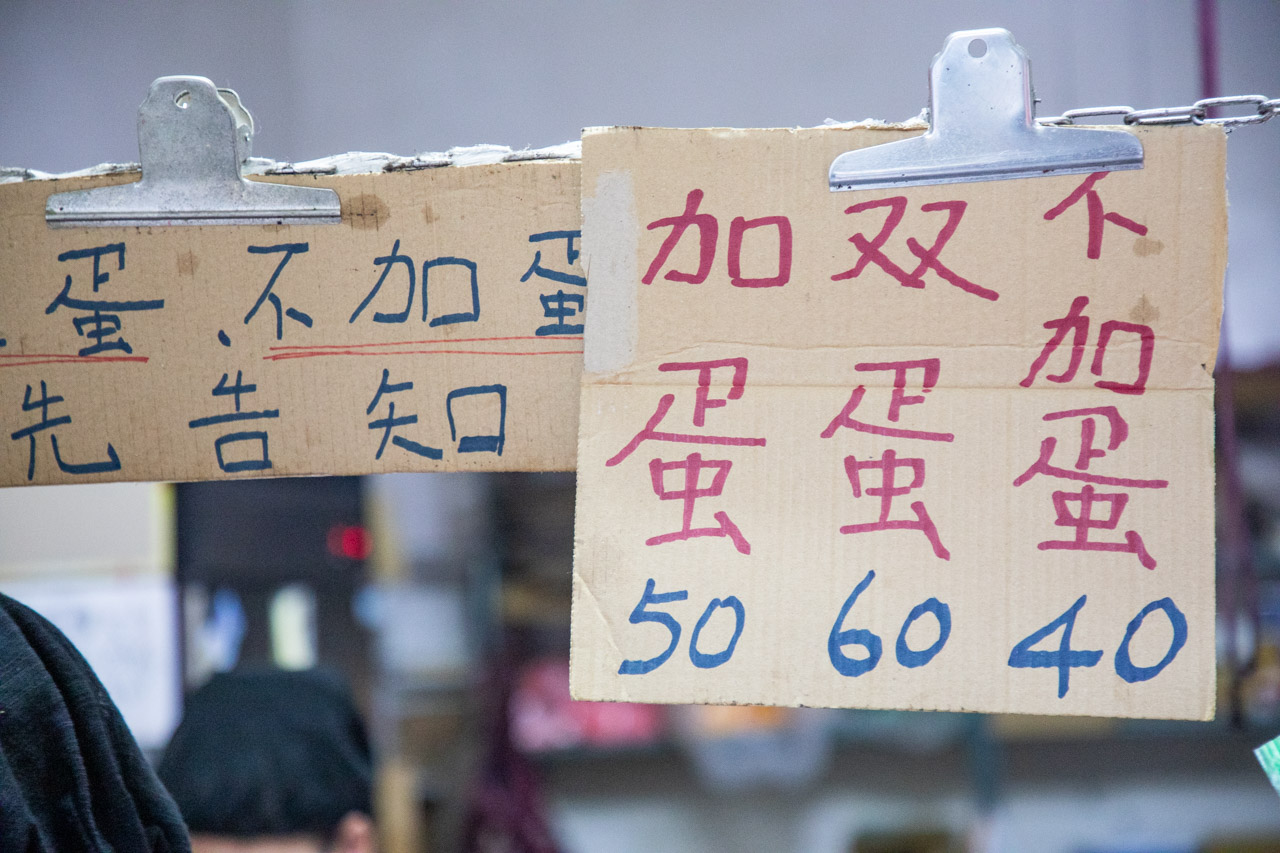 蛋、不加蛋
先告知
加蛋 50
双蛋 60
不加蛋 40